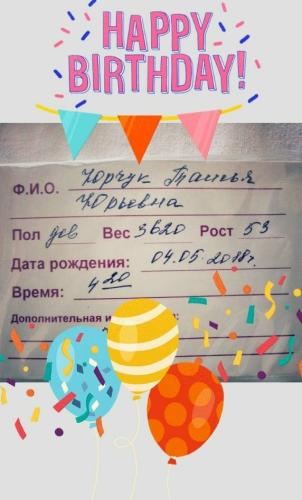 HAPPY
BIRTHDAY!
Ф.И.О. Юрчук Татьяна
Юрьевна
Пол дев Вес 3620 Рост 53
Дата рождения: 04.05.2018г.
Время: 4 20
Дополнительная и